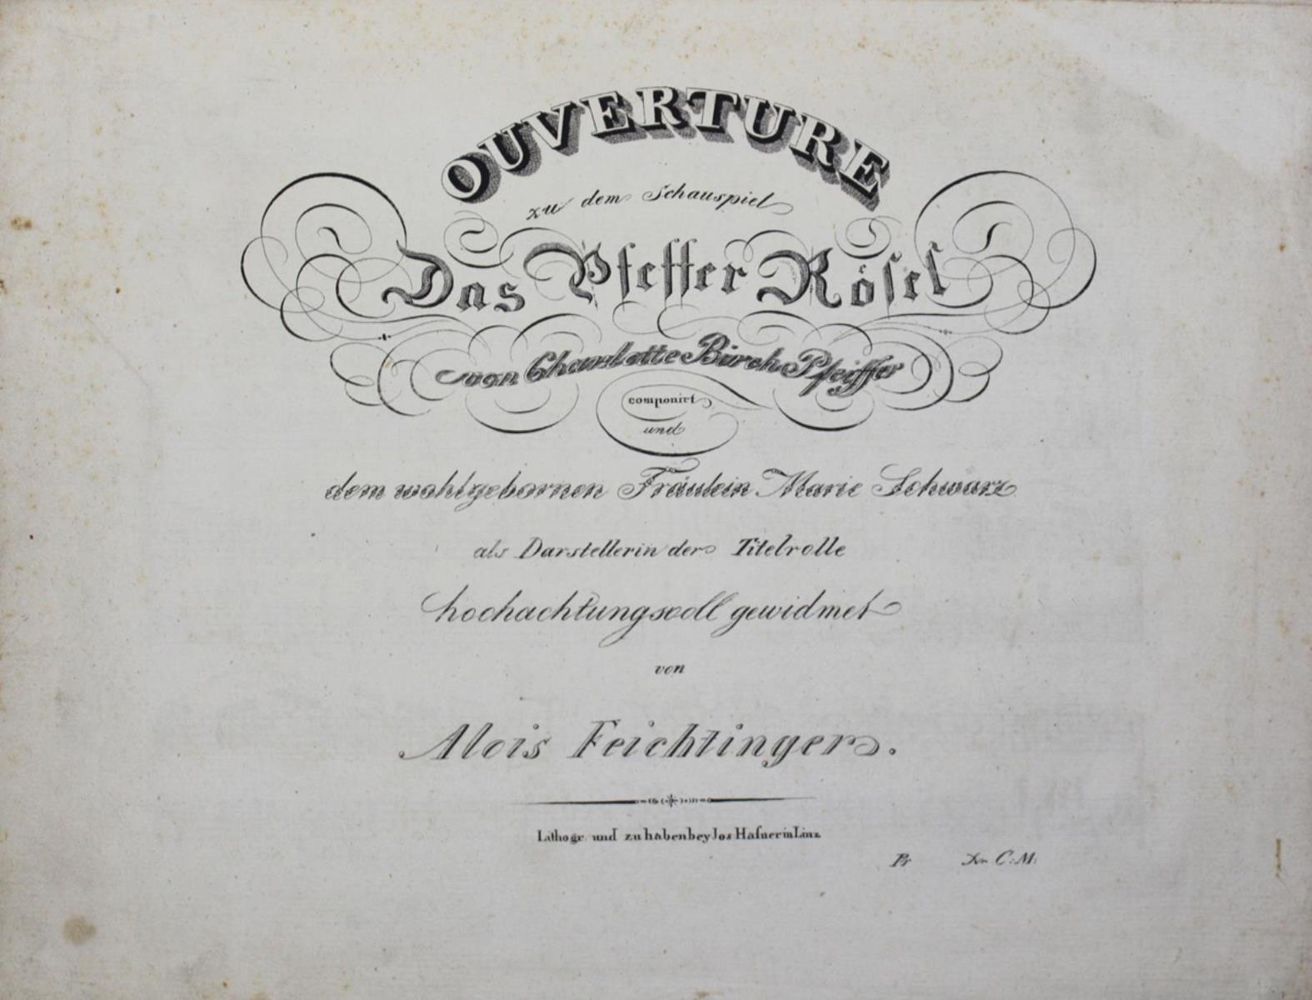 OUVERTURE
zu dem Schauspiel
Das Pfeffer Rösel
von Charlotte Birch Pfeiffer
componirt
und
dem wohlgebornen Fräulein Marie Schwarz
als Darstellerin der Titelrolle
hochachtungsvoll gewidmet
von
Alois Feichtinger.
Lithogr. und zu haben bey Jos Hafner in Linz
Pr Kr C:M: